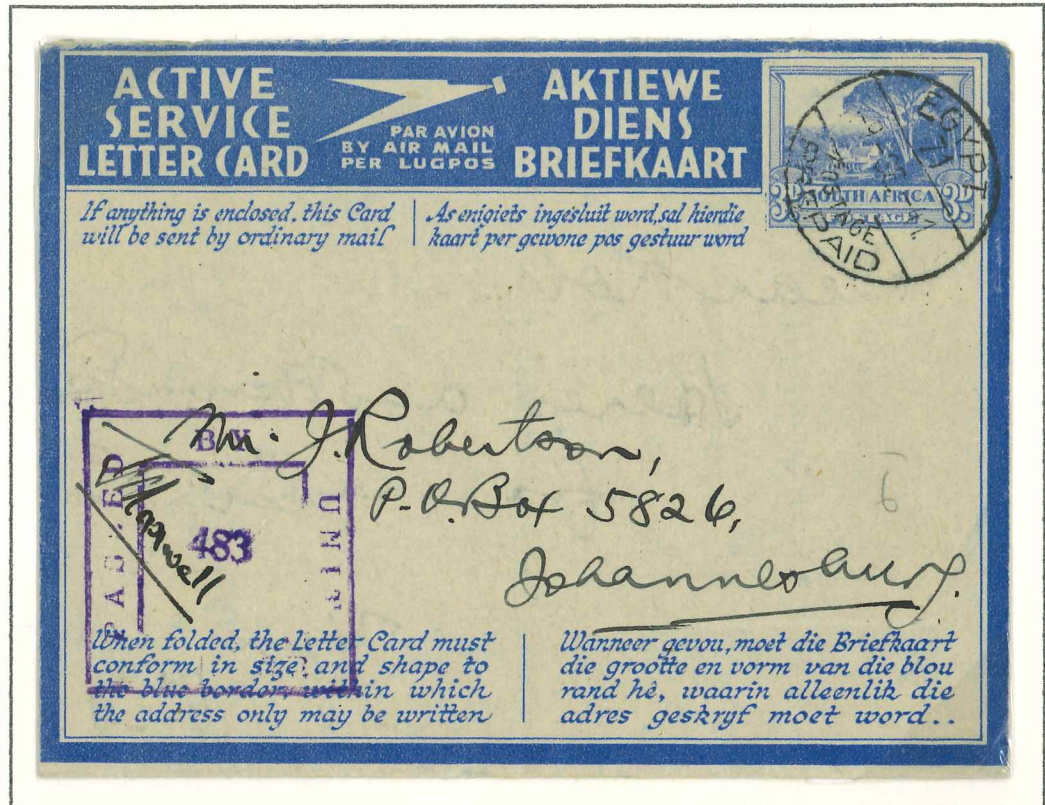 ACTIVE
SERVICE
LETTER CARD
PAR AVION
BY AIR MAIL
PER LUGPOS
AKTIEWE
DIENS
BRIEFKAART
SOUTH AFRICA
EGYPT
71
POSTAGE
PREPAID
If anything is enclosed, this Card
will be sent by ordinary mail
As enigiets ingesluit word, sal hierdie
kaart per gewone pos gestuur word
Mr. J. Robertson,
P.O. Box 5826,
Johannesburg.
BY
483
When folded, the Letter Card must
conform in size and shape to
the blue border, within which
the address only may be written
Wanneer gevou, moet die Briefkaart
die grootte en vorm van die blou
rand hê, waarin alleenlik die
adres geskryf moet word..